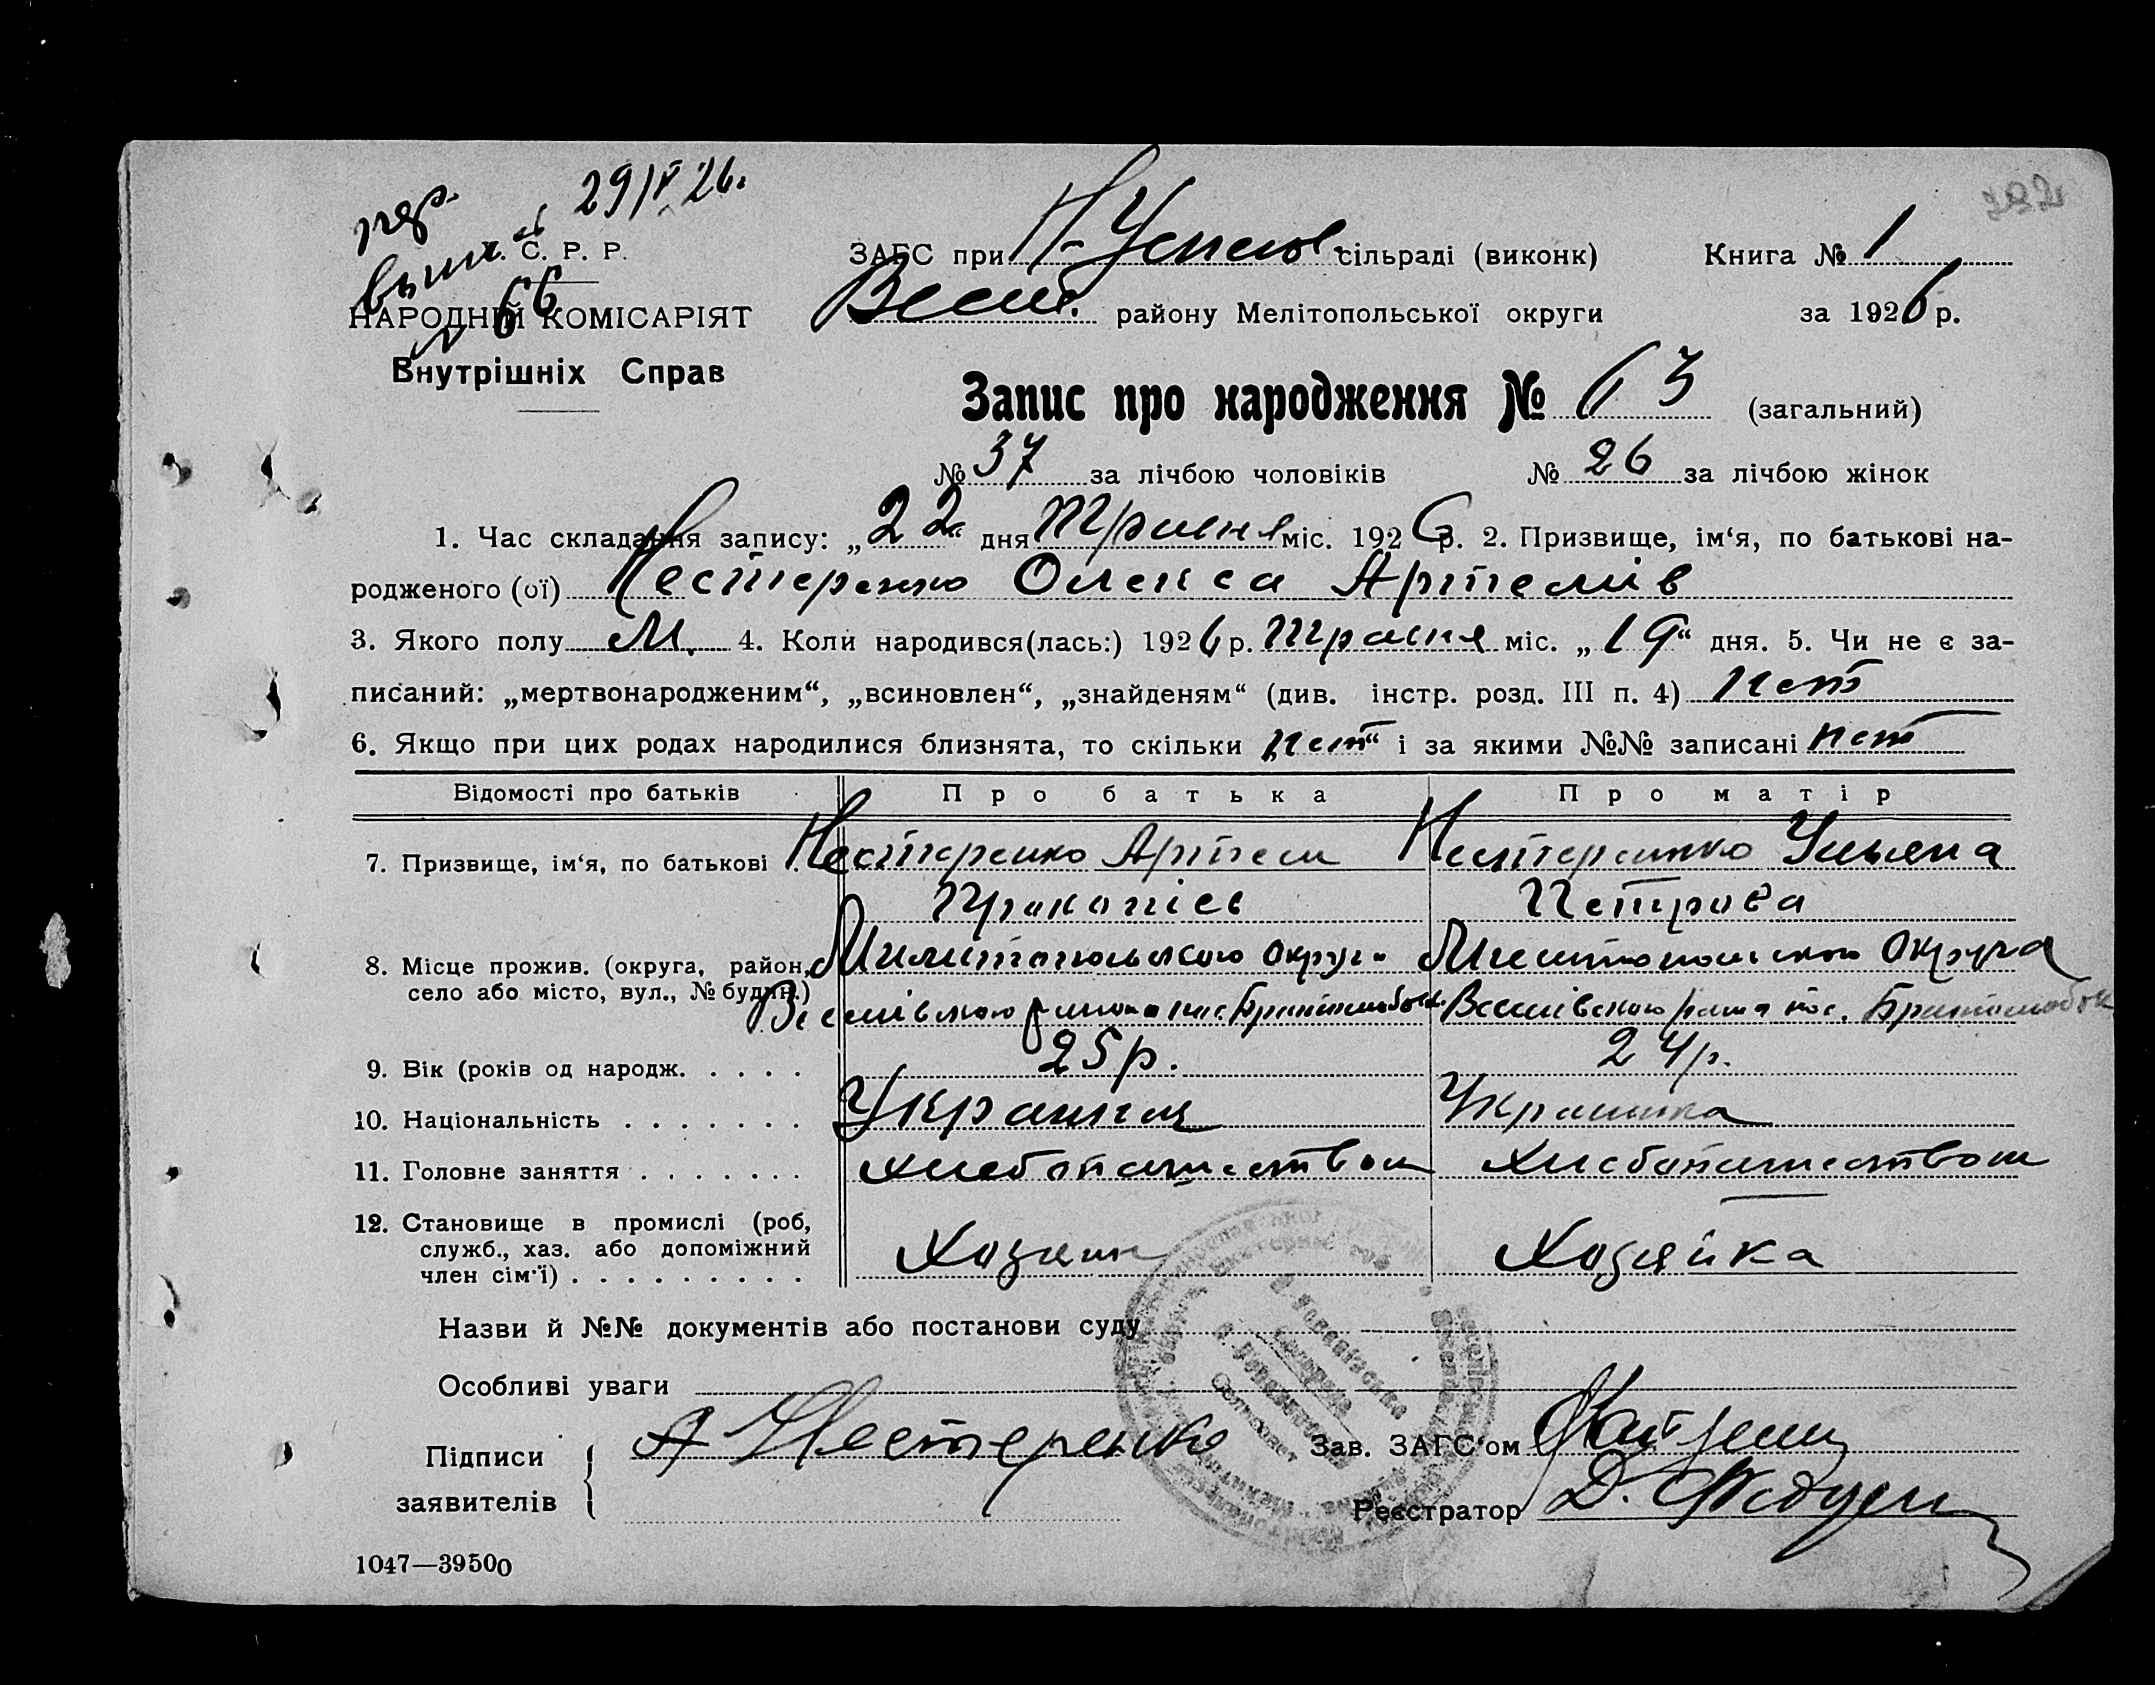 29/V 26.
У. С. Р. Р.
№ 66
НАРОДНІЙ КОМІСАРІЯТ
Внутрішніх Справ
ЗАГС при Н-Успенов сільраді (виконк) Книга № 1
Весел. району Мелітопольської округи за 1926 р.
Запис про народження № 63 (загальний)
№ 37 за лічбою чоловіків № 26 за лічбою жінок
1. Час складання запису: „22“ дня Травня міс. 1926 р. 2. Призвище, ім‘я, по батькові на-
родженого (ої) Нестеренко Олекса Артемів
3. Якого полу М. 4. Коли народився(лась:) 1926 р. Травня міс. „19“ дня. 5. Чи не є за-
писаний: „мертвонародженим“, „всиновлен“, „знайденям“ (див. інстр. розд. III п. 4) Нет
6. Якщо при цих родах народилися близнята, то скільки „нет“ і за якими №№ записані нет
Відомості про батьків Про батька Про матір
7. Призвище, ім‘я, по батькові Нестеренко Артем Нестеренко Ульяна
Прокопіев Петрова
8. Місце прожив. (округа, район, Милитопольского округи Милитопольского Округа
село або місто, вул., № будин.) Веселівского района пос. Веселівского рана пос.
9. Вік (років од народж. . . . . 25 р. 24 р.
10. Національність . . . . . . . Украинец Украинка
11. Головне заняття . . . . . . . хлебопашеством Хлебопашеством
12. Становище в промислі (роб,
служб., хаз. або допоміжний Хозяин Хозяйка
член сім‘ї) . . . . . . . . .
Назви й №№ документів або постанови суду
Особливі уваги
Підписи А Нестеренко Зав. ЗАГС‘ом
заявителів Реєстратор Д.
1047—39500